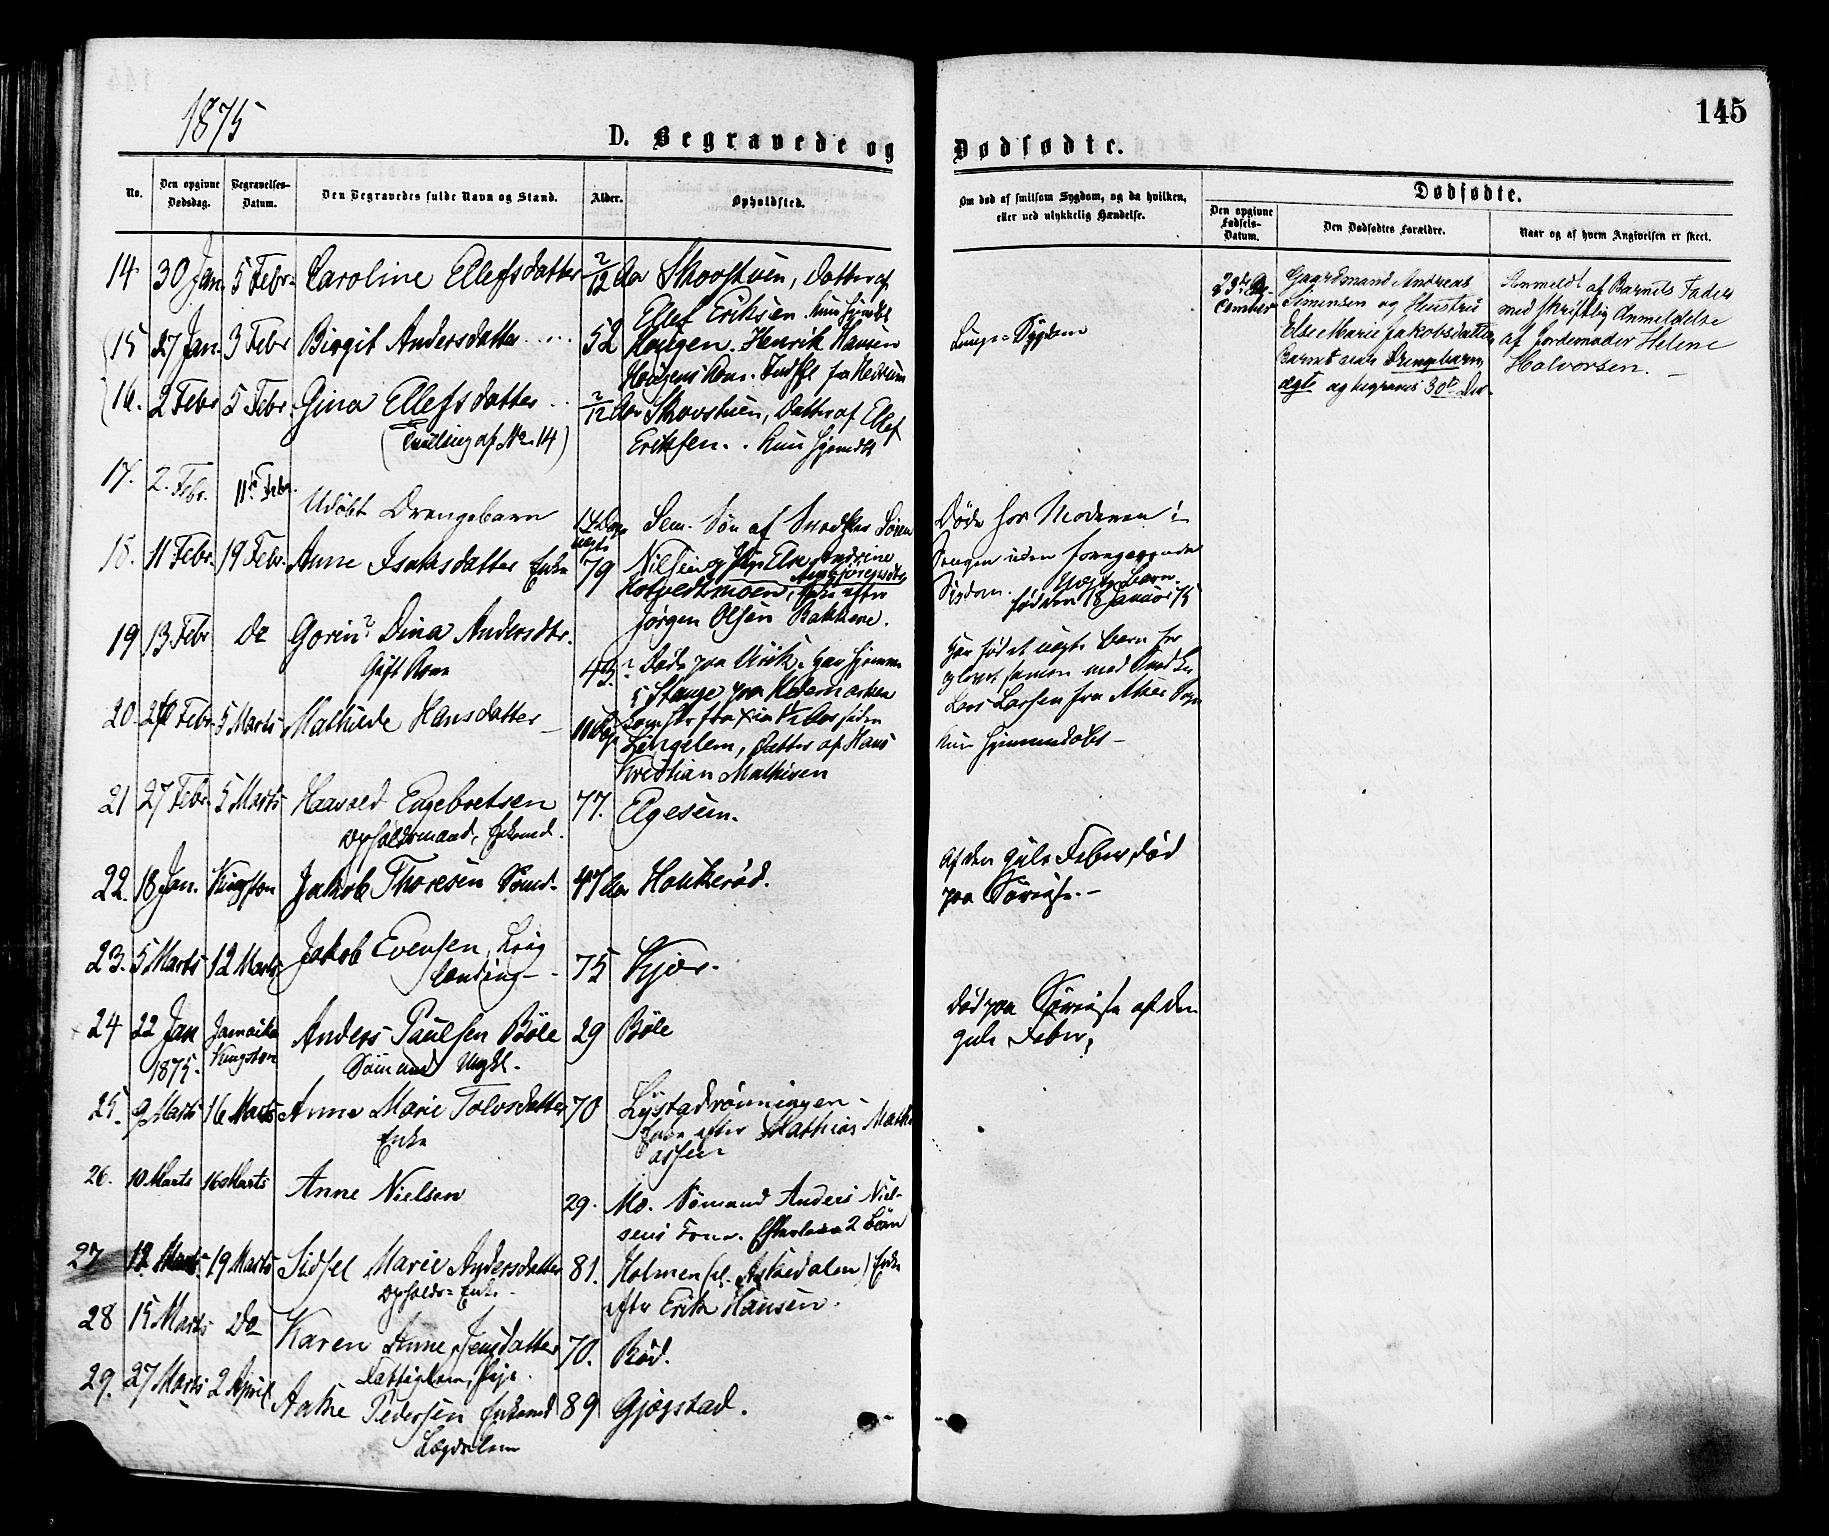 1875
145
D. Begravede og Dødfødte.
No.
Den opgivne Dødsdag.
Begravelses-Datum.
Den Begravedes fulde Navn og Stand.
Alder.
Opholdsted.
Om død af smitsom Sygdom, og da hvilken, eller ved ulykkelig Hændelse.
Dødfødte.
Den opgivne Fødsels-Datum.
Den Dødfødtes Forældre.
Naar og af hvem Angivelsen er skeet.
14 30 Jan 5 Febr. Caroline Ellefsdatter 2/12 Aar Skovstuen, Datter af
Ellef Eriksen. kun hjemdbt
15 27 Jan. 3 Febr Birgit Andersdatter 52 Haugen. Henrik Hansen
Lunge-Sygdom
16. 2 Febr 5 Febr. Gina Ellefsdatter 2/12 Aar Skovstuen, Datter af Ellef
(Tvilling af No 14) Eriksen. kun hjemdbt
17. 2. Febr. 11te Febr. Udøbt Drengebarn 14 Dage Sem. Søn af Søren
uægte Nilsen og Else Andrine
Døde hos Moderen i
Sengen uden foregaaende
Sygdom. Uægte Barn.
født den 18 Januar 75
18. 11 Febr. 19 Febr. Anne Isaksdatter Enke 79 Holtvedtmoen, Enke efter
Jørgen Olsen Bakkene.
19 13 Febr Do Gorin? Dina Andersdtr. 43. ? Døde paa
Gift Kone Stange paa Hedemarken
Har født uægte Barn for
Lars Larsen fra Sogn
20. Febr 5 Marts Mathilde Hansdatter 11 Dage Lingelem, Datter af Hans
Kristian Mathisen
kun hjemmedøbt
21 27 Febr. 5 Marts Haavald Engebretsen 77. Elgesem.
Opholdsmand, Enkemd.
22. 18 Jan. Kingston Jakob Thoresen Sømd. 47 Aar Haukerød.
Af den gule Feber, død
paa Søreise.
23. 5 Marts 12 Marts Jakob Evensen, 75 Kjær.
24 22 Jan 1875. Jamaika Kingston Anders Paulsen Bøle 29 Bøle
Sømand Ungkl.
død paa Søreise af den
gule Feber,
25. 9 Marts 16 Marts Anne Marie Tolvsdatter 70 Lystadrønningen
Enke Enke efter Mathias Mathi
assen
26. 10 Marts 16 Marts Anne Nielsen 29. Mo. Sømand Anders Niel-
sens Kone. Efterlader 2 Børn
27 12 Marts 19 Marts Sidsel Marie Andersdatter 81. Holmen (el. Askedalen) Enke
Opholds-Enke efter Erik Hansen.
28 15 Marts Do Karen Anne Jensdatter 70. Rød.
Fattiglem, Pige.
29. 27 Marts 2 April Aake Pedersen Enkemd 89 Gjøgstad.
Lægdslem
23de De-
cember
Gaardmand Andreas
Simensen og Hustru
Else Marie Jakobsdatter,
Barnet var Drengebarn,
ægte og begraves 30te Dec.
Anmeldt af Barnets Fader
med skriftlig Anmeldelse
af Jordemoder Helene
Halvorsen.